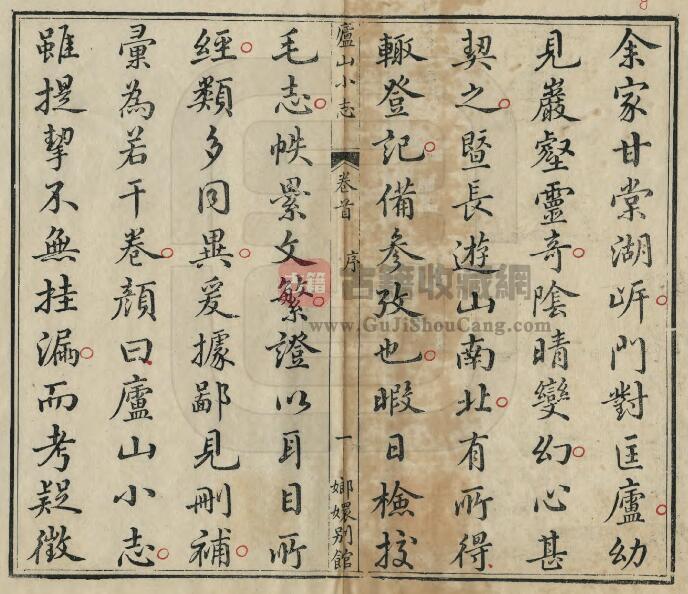 余家甘棠湖㟁門對匡廬幼
見巖壑靈奇陰晴變幻心甚
契之暨長遊山南北有所得
輙登記備參攷也暇日檢挍
廬山小志
卷首
序
一
嫏嬛別館
毛志帙纍文繁證以耳目所
經類多同異爰據鄙見刪補
彚為若干卷顏曰廬山小志
雖提挈不無挂漏而考疑徵
古籍
古籍收藏網
www.GuJiShouCang.com